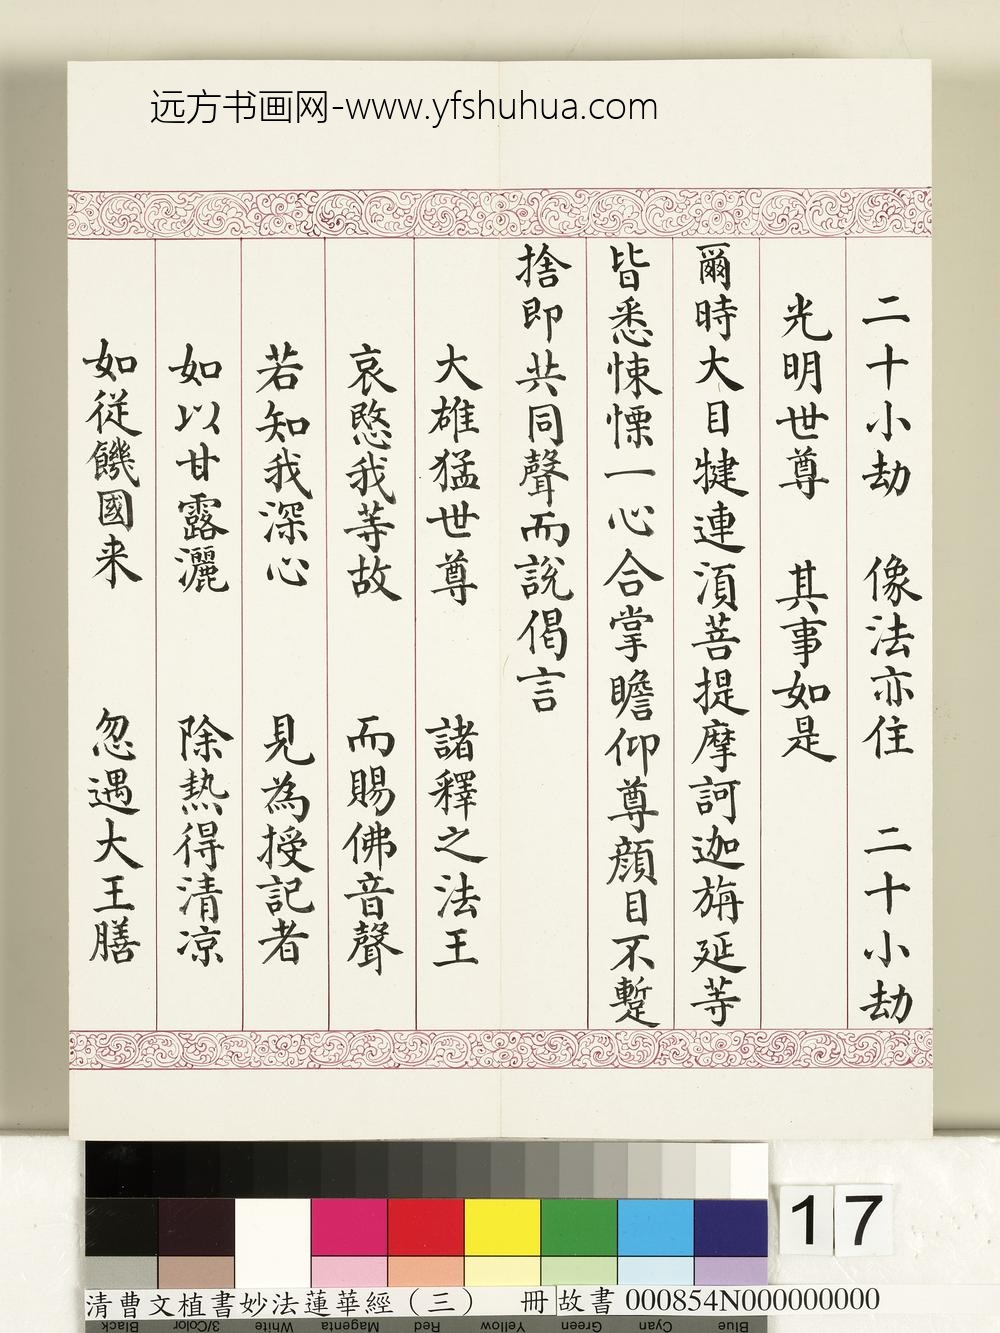 远方书画网-www.yfshuhua.com
二十小劫 像法亦住 二十小劫
光明世尊 其事如是
爾時大目犍連湏菩提摩訶迦旃延等
皆悉悚慄一心合掌瞻仰尊顏目不蹔
捨即共同聲而說偈言
大雄猛世尊 諸釋之法王
哀愍我等故 而賜佛音聲
若知我深心 見為授記者
如以甘露灑 除熱得清凉
如從饑國来 忽遇大王膳
17
清曹文植書妙法蓮華經（三） 冊 故書 000854N000000000
Black 3/Color White Magenta Red Yellow Green Cyan Blue